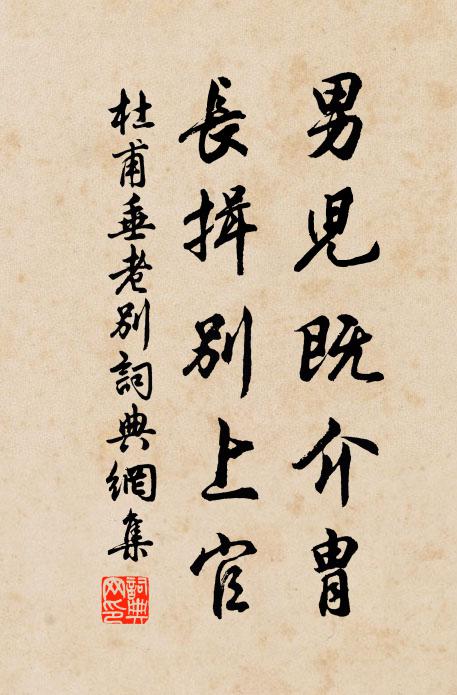 男兒既介胄
長揖別上官
杜甫垂老別詞典網集
詞典网印